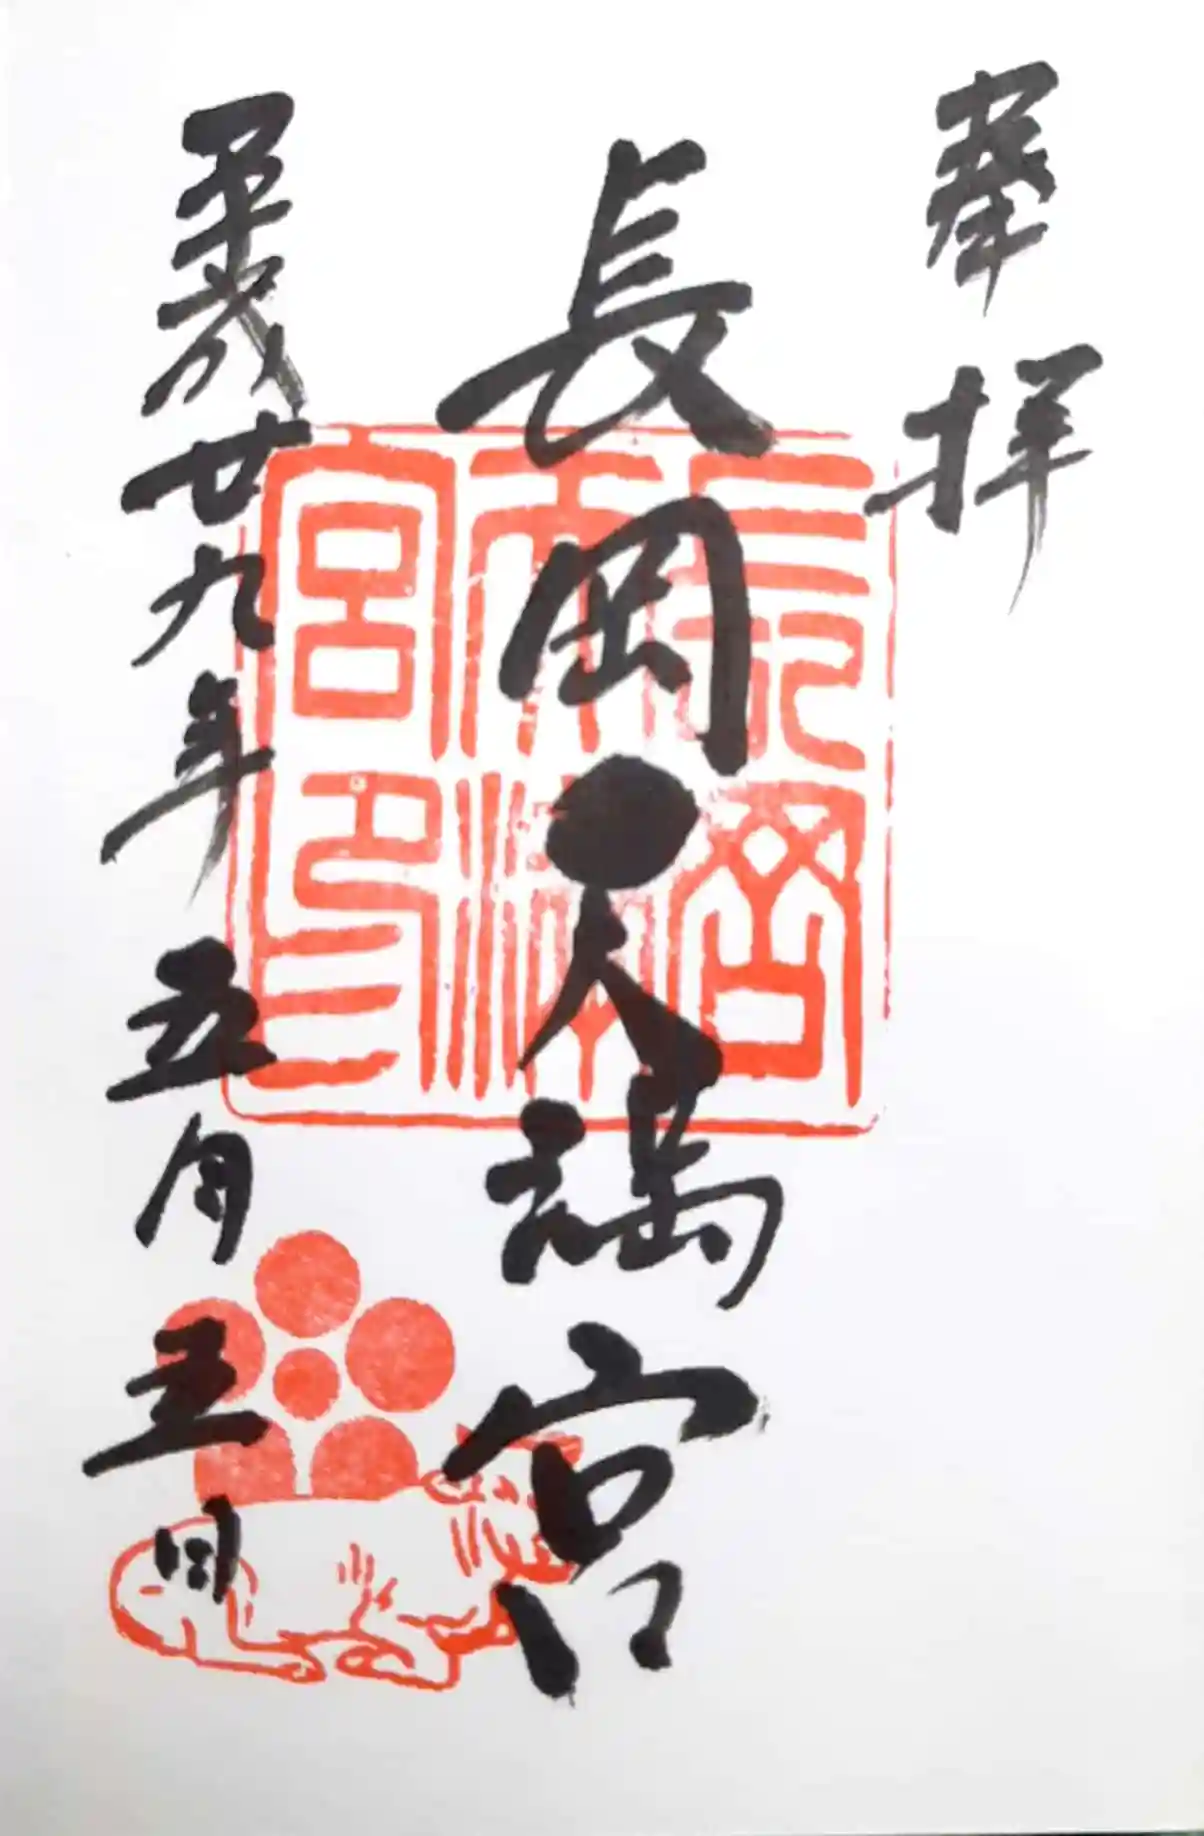 奉拝
長岡天満宮
平成廿九年五月五日
長岡天満宮印